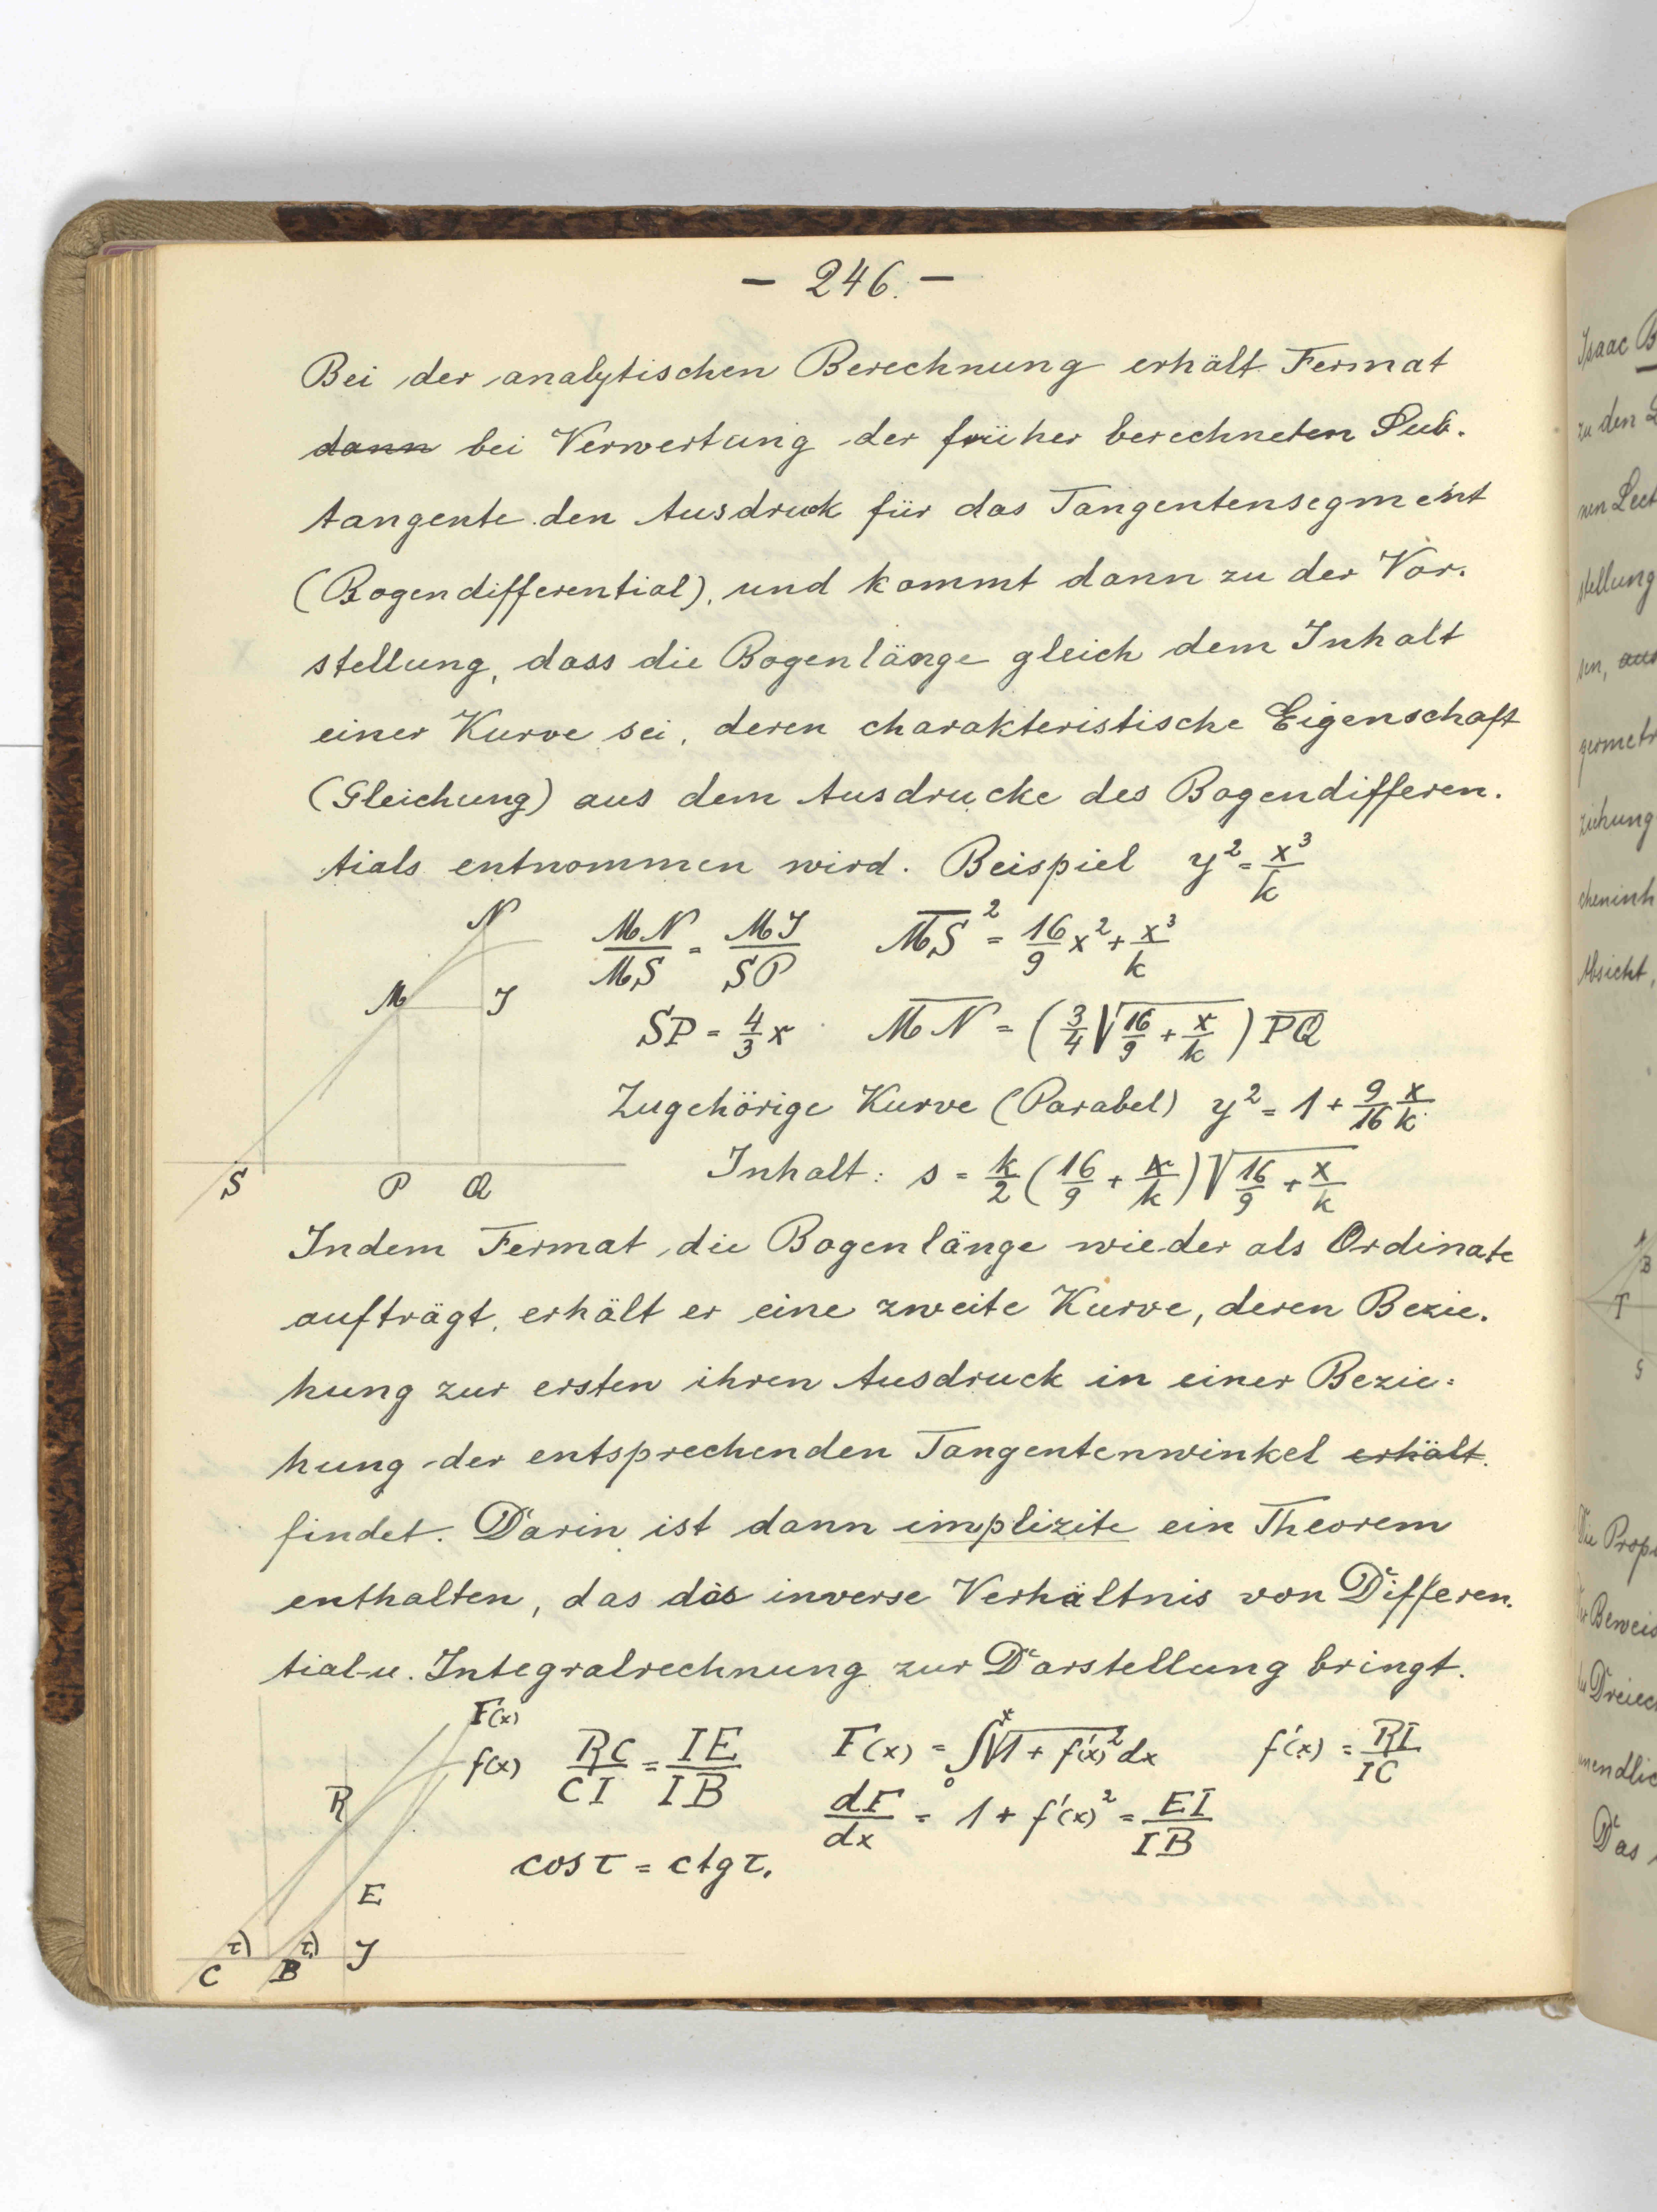 - 246. -
Bei der analytischen Berechnung erhält Fermat
dann bei Verwertung der früher berechneten Sub-
tangente den Ausdruck für das Tangentensegment
(Bogendifferential), und kommt dann zu der Vor-
stellung, dass die Bogenlänge gleich dem Inhalt
einer Kurve sei, deren charakteristische Eigenschaft
(Gleichung) aus dem Ausdrucke des Bogendifferen-
tials entnommen wird. Beispiel y² = x³/k
N
M J
S P Q
MN/MS = MJ/SP MS² = 16/9 x² + x³/k
SP = 4/3 x MN = (3/4 √(16/9 + x/k)) PQ
Zugehörige Kurve (Parabel) y² = 1 + 9/16 x/k
Inhalt: s = k/2 (16/9 + x/k) √(16/9 + x/k)
Indem Fermat die Bogenlänge wieder als Ordinate
aufträgt, erhält er eine zweite Kurve, deren Bezie-
hung zur ersten ihren Ausdruck in einer Bezie=
hung der entsprechenden Tangentenwinkel erhält.
findet. Darin ist dann implizite ein Theorem
enthalten, das das inverse Verhältnis von Differen-
tial-u. Integralrechnung zur Darstellung bringt.
F(x)
f(x)
R
E
τ) τ,)
C B J
RC/CI = IE/IB F(x) = ∫₀ˣ √(1 + f'(x)²) dx f'(x) = RI/IC
dF/dx = 1 + f'(x)² = EI/IB
cos τ = ctg τ,
Isaac B
zu den
nen Lect
stellung
sen, aus
geometr
ziehung
cheninh
Absicht,
B
T
G
Die Prop
Der Beweis
Dreiec
unendlic
Das